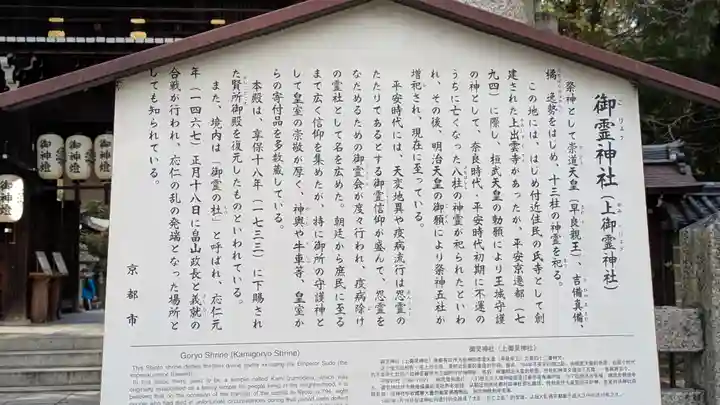 御霊神社（上御霊神社）
祭神として崇道天皇（早良親王）、吉備真備、
橘逸勢をはじめ、十三柱の神霊を祀る。
この地には、はじめ付近住民の氏寺として創
建された上出雲寺があったが、平安京遷都（七
九四）に際し、桓武天皇の勅願により王城守護
の神として、奈良時代、平安時代初期に不運の
うちに亡くなった八柱の神霊が祀られたといわ
れ、その後、明治天皇の御願により祭神五社が
増祀され、現在に至っている。
平安時代には、天変地異や疫病流行は悪霊の
たたりであるとする御霊信仰が盛んで、怨霊を
なだめるための御霊会が度々行われ、疫病除け
の霊社として名を広めた。朝廷から庶民に至る
まで広く信仰を集めたが、特に御所の守護神と
して皇室の崇敬が厚く、神輿や牛車等、皇室か
らの寄付品を多数蔵している。
本殿は、享保十八年（一七三三）に下賜され
た賢所御殿を復元したものといわれている。
また、境内は「御霊の杜」と呼ばれ、応仁元
年（一四六七）正月十八日に畠山政長と義就の
合戦が行われ、応仁の乱の発端となった場所と
しても知られている。
京都市
御神燈
御神燈
御神燈
Goryo Shrine (Kamigoryo Shrine)
御灵神社（上御灵神社）